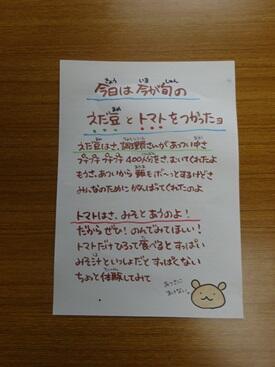 きょう いま しゅん
今日は 今が旬の
まめ
えだ豆とトマトをつかったョ
えだ豆はさ、調理員さんがあつい中さ
プチプチ プチプチ 400人分をさ、むいてくれたよ
もうさ、あついから 頭もボ〜っとするけどさ
みんなのために がんばってくれたのよ
トマトはさ、みそとあうのよ！
だから ぜひ！のんでみてほしい！
トマトだけひろって食べるとすっぱい
みそ汁といっしょだとすっぱくない
ちょっと体験してみて
あつさに
まけない。